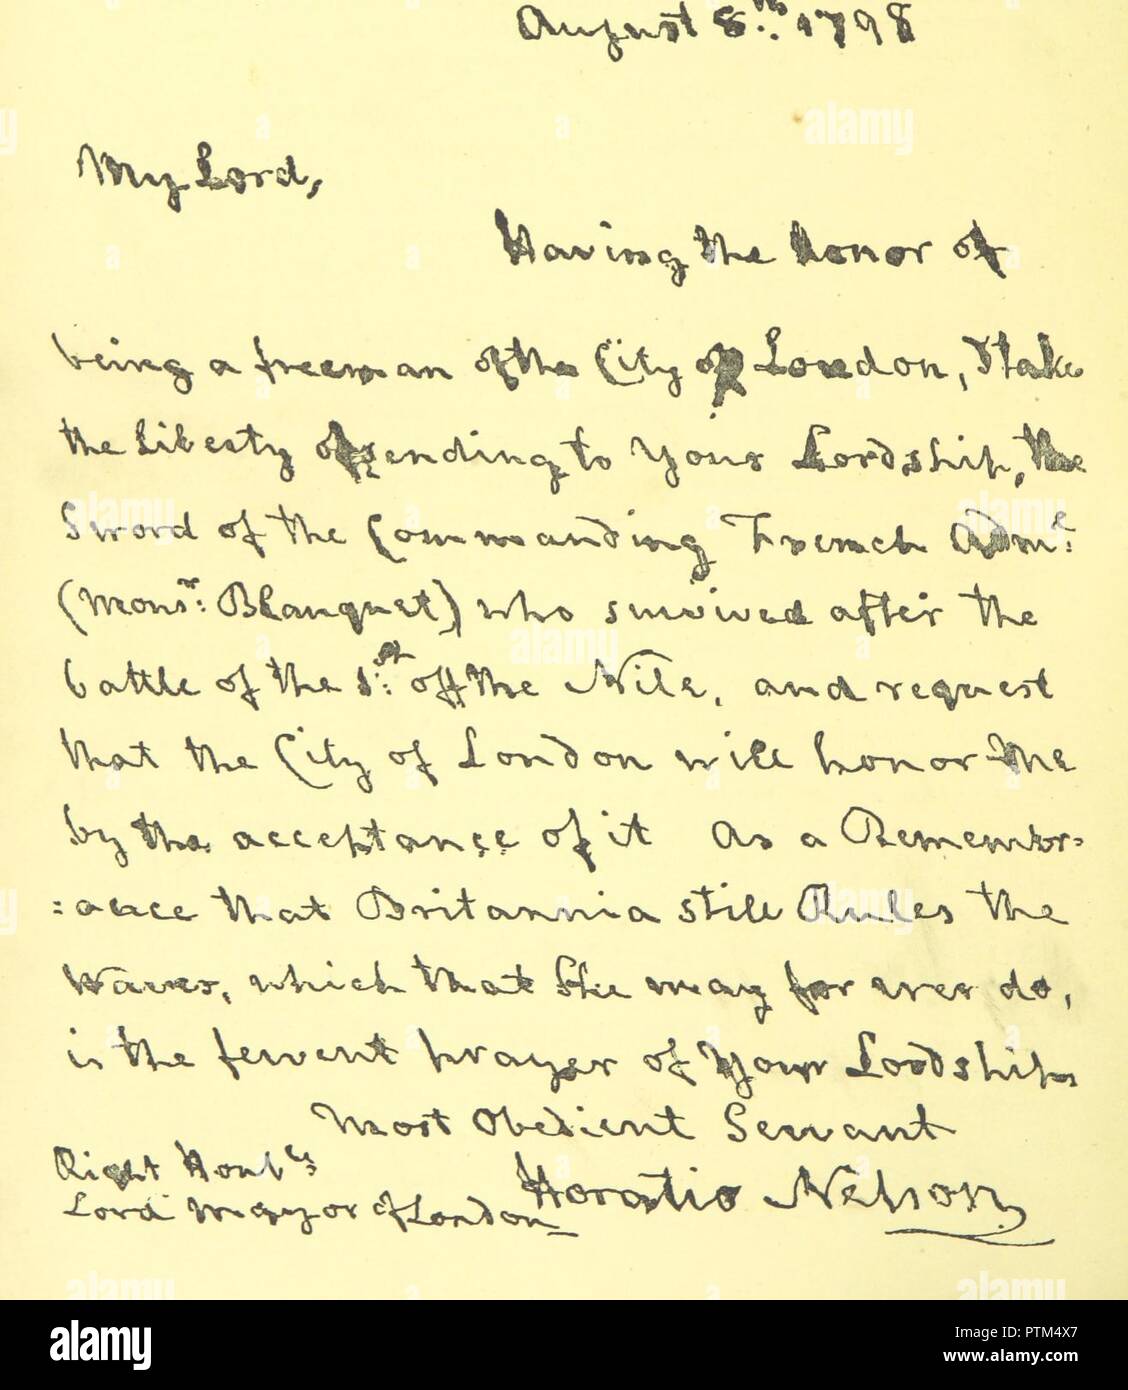 August 8.th 1798
My Lord,
Having the honor of
being a freeman of the City of London, I take
the liberty of sending to your Lordship, the
Sword of the Commanding French Adm.l
(Mons.r: Blanquet) who survived after the
battle of the 1.st off the Nile, and request
that the City of London will honor me
by the acceptance of it as a Remembr=
=ance that Britannia still Rules the
Waves, which that She may for ever do,
is the fervent prayer of your Lordships
most Obedient Servant
Horatio Nelson
Right Honb.le
Lord Mayor of London
alamy
a
Image ID: PTM4X7
www.alamy.com